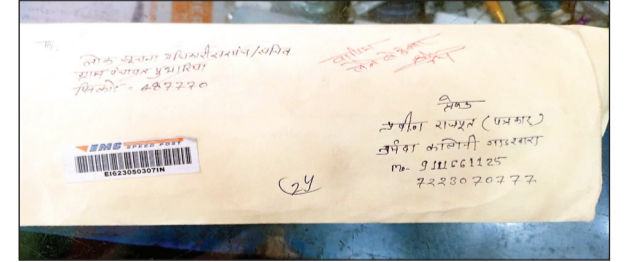 प्रति
लोक सूचना अधिकारी सरपंच/सचिव
ग्राम पंचायत
पिनकोड - 487770
वापिस
लेने से इन्कार
EMS SPEED POST
EI623050307IN
24
प्रेषक
राजपूत (पत्रकार)
नर्मदा कालोनी गाडरवारा
Mo- 9111661125
7223070777